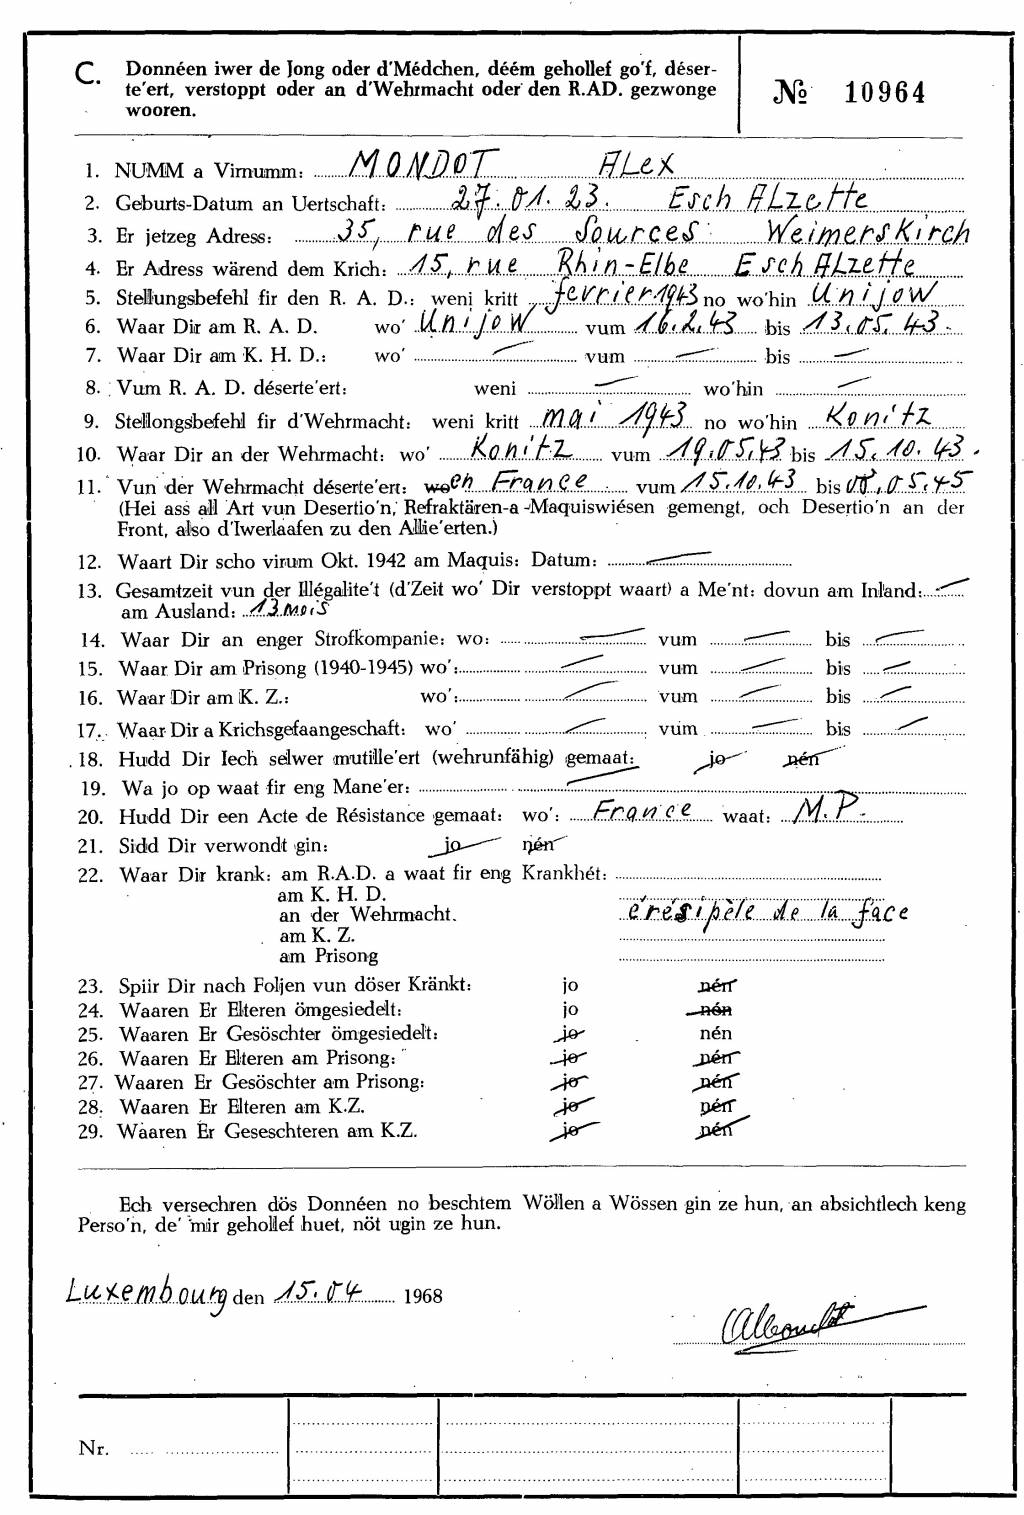 C. Donnéen iwer de Jong oder d'Médchen, déém gehollef go'f, déser-
te'ert, verstoppt oder an d'Wehrmacht oder den R.AD. gezwonge
wooren.
№ 10964
1. NUMM a Virnumm: MONDOT ALex
2. Geburts-Datum an Uertschaft: 27.01.23. Esch ALzette
3. Er jetzeg Adress: 35, rue des Sources Weimerskirch
4. Er Adress wärend dem Krich: 15, rue Rhin-Elbe Esch ALzette
5. Stellungsbefehl fir den R. A. D.: weni kritt fevrier 1943 no wo'hin Unijow
6. Waar Dir am R. A. D. wo' Unijow vum 16.2.43 bis 13.05.43.
7. Waar Dir am K. H. D.: wo' — vum — bis —
8. Vum R. A. D. déserte'ert: weni — wo'hin —
9. Stellongsbefehl fir d'Wehrmacht: weni kritt mai 1943 no wo'hin Konitz
10. Waar Dir an der Wehrmacht: wo' Konitz vum 19.05.43 bis 15.10.43.
11. Vun der Wehrmacht déserte'ert: wo en France vum 15.10.43 bis 08.05.45
(Hei ass all Art vun Desertio'n, Refraktären-a -Maquiswiésen gemengt, och Desertio'n an der
Front, also d'Iwerlaafen zu den Allie'erten.)
12. Waart Dir scho virum Okt. 1942 am Maquis: Datum: —
13. Gesamtzeit vun der Illégalite't (d'Zeit wo' Dir verstoppt waart) a Me'nt: dovun am Inland: —
am Ausland: 13 mois
14. Waar Dir an enger Strofkompanie: wo: — vum — bis —
15. Waar Dir am Prisong (1940-1945) wo': — vum — bis —
16. Waar Dir am K. Z.: wo': — vum — bis —
17. Waar Dir a Krichsgefaangeschaft: wo' — vum — bis —
18. Hudd Dir Iech selwer mutille'ert (wehrunfähig) gemaat: jo nén
19. Wa jo op waat fir eng Mane'er: —
20. Hudd Dir een Acte de Résistance gemaat: wo': France waat: M.P.
21. Sidd Dir verwondt gin: jo nén
22. Waar Dir krank: am R.A.D. a waat fir eng Krankhét:
am K. H. D.
an der Wehrmacht. érésipèle de la face
am K. Z.
am Prisong
23. Spiir Dir nach Foljen vun döser Kränkt: jo nén
24. Waaren Er Elteren ömgesiedelt: jo nén
25. Waaren Er Gesöschter ömgesiedelt: jo nén
26. Waaren Er Elteren am Prisong: jo nén
27. Waaren Er Gesöschter am Prisong: jo nén
28. Waaren Er Elteren am K.Z. jo nén
29. Waaren Er Geseschteren am K.Z. jo nén
Ech versechren dös Donnéen no beschtem Wöllen a Wössen gin ze hun, an absichtlech keng
Perso'n, de' mir gehollef huet, nöt ugin ze hun.
Luxembourg den 15.04 1968
Nr.